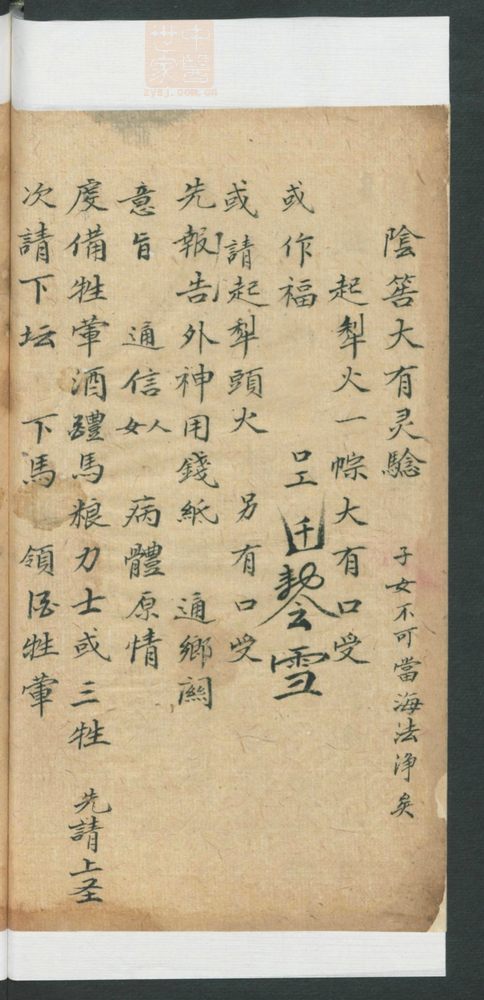 陰筶大有灵驗　子女不可當海法淨矣
起犁火一悰大有口受
或作福
或請起犁頭火　另有口受
先報告外神用錢紙　通鄉關
意旨　通信女人　病體原情
虔備牲葷酒醴馬粮力士或三牲　先請上圣
次請下坛　下馬　領尽牲葷
中醫世家
zysj.com.cn